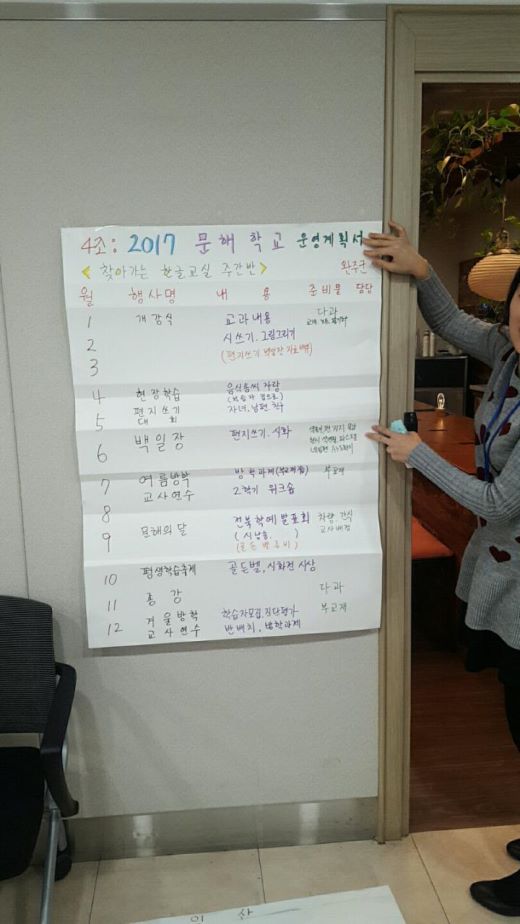 4조: 2017 문해 학교 운영계획서
<찾아가는 한글교실 주간반> 완주군
월 행사명 내용 준비물 담당
1 개강식 교과내용 다과
2 시쓰기. 그림그리기
3 (편지쓰기 백일장
4 현장학습 음식솜씨 자랑
편지쓰기
5 대회 자녀, 남편, 친구
6 백일장 편지쓰기. 시화
7 여름방학 방학과제 부교재
교사연수 2학기 워크숍
8
9 문해의 달 전북학예발표회 차량, 간식
(시낭송. ) 교사배정
(골든벨 준비)
10 평생학습축제 골든벨, 시화전 시상
11 종강 다과
12 겨울방학 학습자모집. 진단평가 부교재
교사연수 반배치. 방학과제